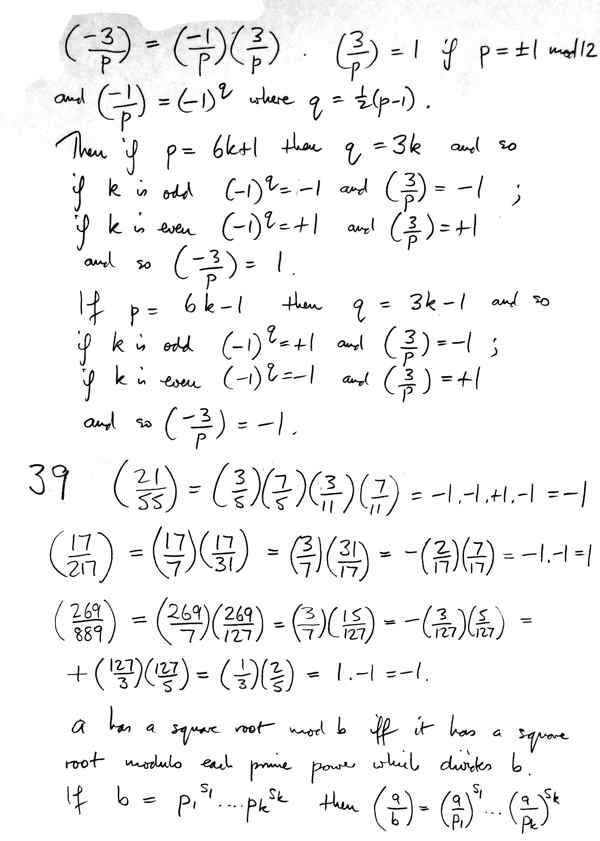 (-3/p) = (-1/p)(3/p) . (3/p) = 1 if p = ±1 mod 12
and (-1/p) = (-1)^q where q = ½(p-1).
Then if p = 6k+1 then q = 3k and so
if k is odd (-1)^q = -1 and (3/p) = -1 ;
if k is even (-1)^q = +1 and (3/p) = +1
and so (-3/p) = 1.
If p = 6k-1 then q = 3k-1 and so
if k is odd (-1)^q = +1 and (3/p) = -1 ;
if k is even (-1)^q = -1 and (3/p) = +1
and so (-3/p) = -1.
39 (21/55) = (3/5)(7/5)(3/11)(7/11) = -1.-1.+1.-1 = -1
(17/217) = (17/7)(17/31) = (3/7)(31/17) = -(2/17)(7/17) = -1.-1 = 1
(269/889) = (269/7)(269/127) = (3/7)(15/127) = -(3/127)(5/127) =
+(127/3)(127/5) = (1/3)(2/5) = 1.-1 = -1.
a has a square root mod b iff it has a square
root modulo each prime power which divides b.
If b = p₁^s₁ .... pₖ^sₖ then (a/b) = (a/p₁)^s₁ ... (a/pₖ)^sₖ